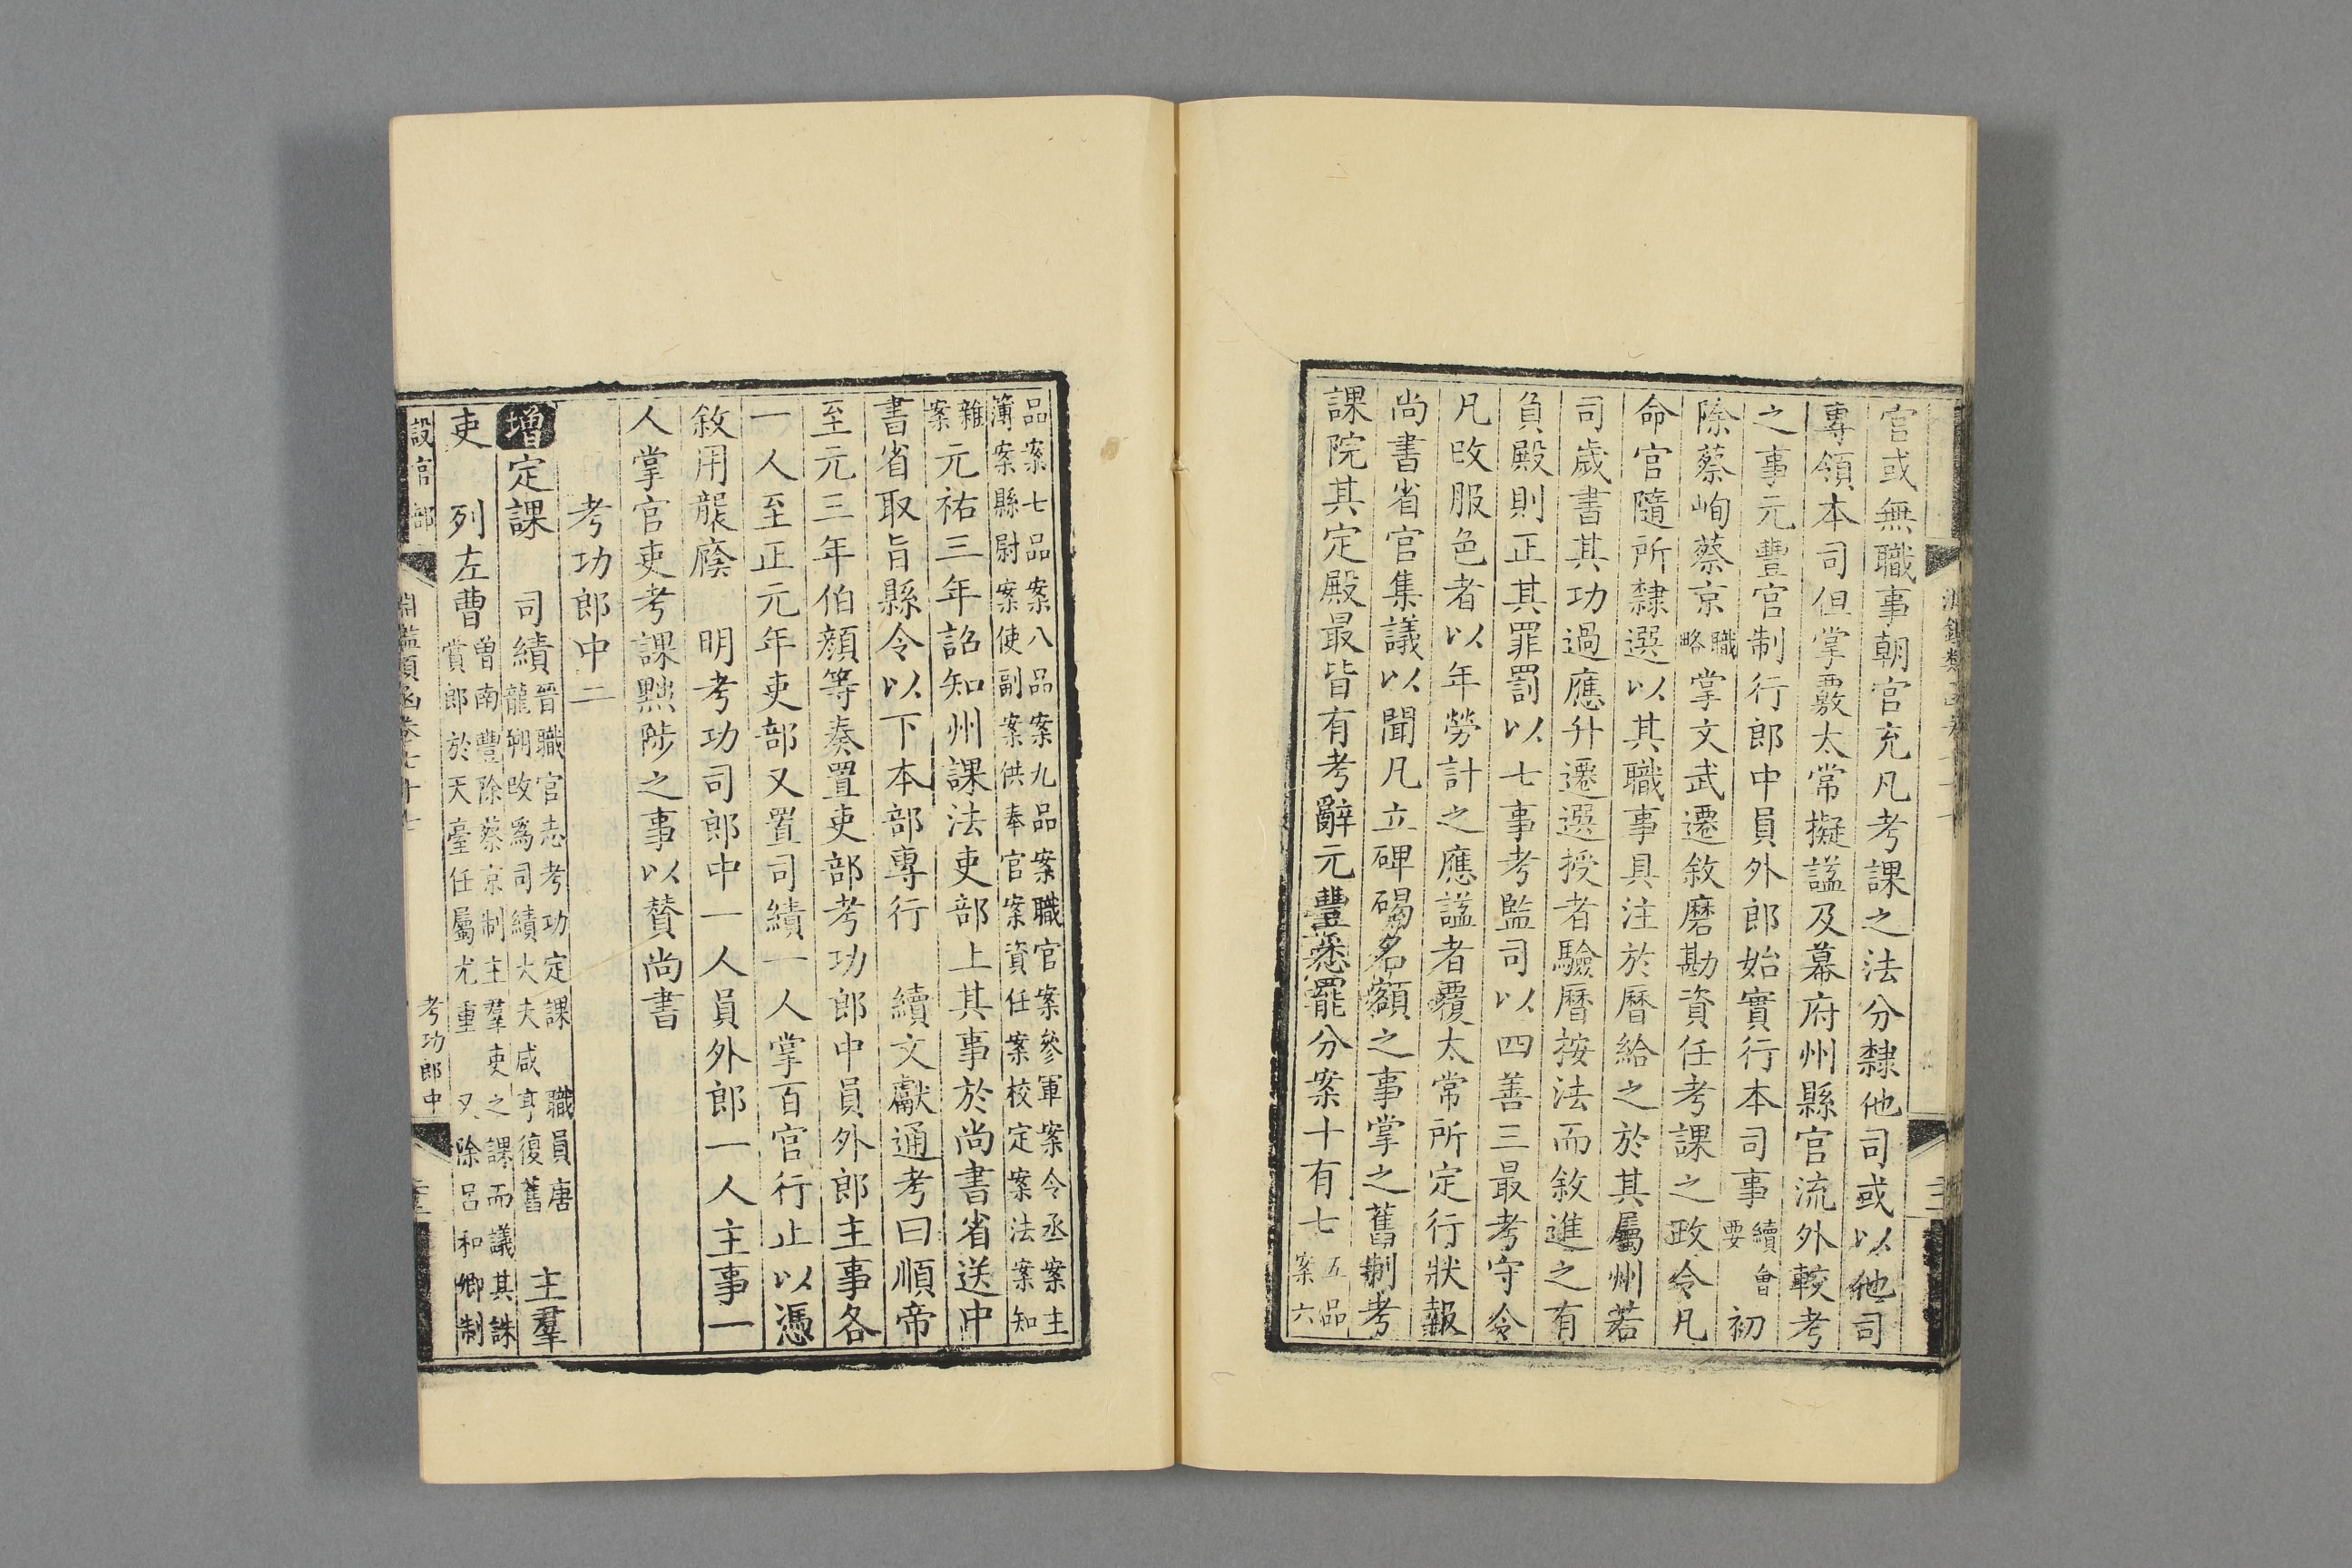 官或無職事朝官充凡考課之法分隸他司或以他司
專領本司但掌覈太常擬諡及幕府州縣官流外較考
之事元豐官制行郎中員外郎始實行本司事續會要初
除蔡峋蔡京職略掌文武遷敘磨勘資任考課之政令凡
命官隨所隸選以其職事具注於曆給之於其屬州若
司歲書其功過應升遷選授者驗曆按法而敘進之有
負殿則正其罪罰以七事考監司以四善三最考守令
凡改服色者以年勞計之應諡者覆太常所定行狀報
尚書省官集議以聞凡立碑碣名額之事掌之舊制考
課院其定殿最皆有考辭元豐悉罷分案十有七五品案六
品案七品案八品案九品案職官案參軍案令丞案主
簿案縣尉案使副案供奉官案資任案校定案法案知
雜案元祐三年詔知州課法吏部上其事於尚書省送中
書省取旨縣令以下本部專行 續文獻通考曰順帝
至元三年伯顏等奏置吏部考功郎中員外郎主事各
一人至正元年吏部又置司績一人掌百官行止以憑
敘用襲廕 明考功司郎中一人員外郎一人主事一
人掌官吏考課黜陟之事以贊尚書
考功郎中二
增定課 晉職官志考功定課 司績 職員唐龍朔改爲司績大夫咸亨復舊 主羣
吏 曾南豐除蔡京制主羣吏之課而議其誅賞 列左曹 又除呂和卿制郎於天臺任屬尤重
設官部
淵鑑類函卷七十七
考功郎中